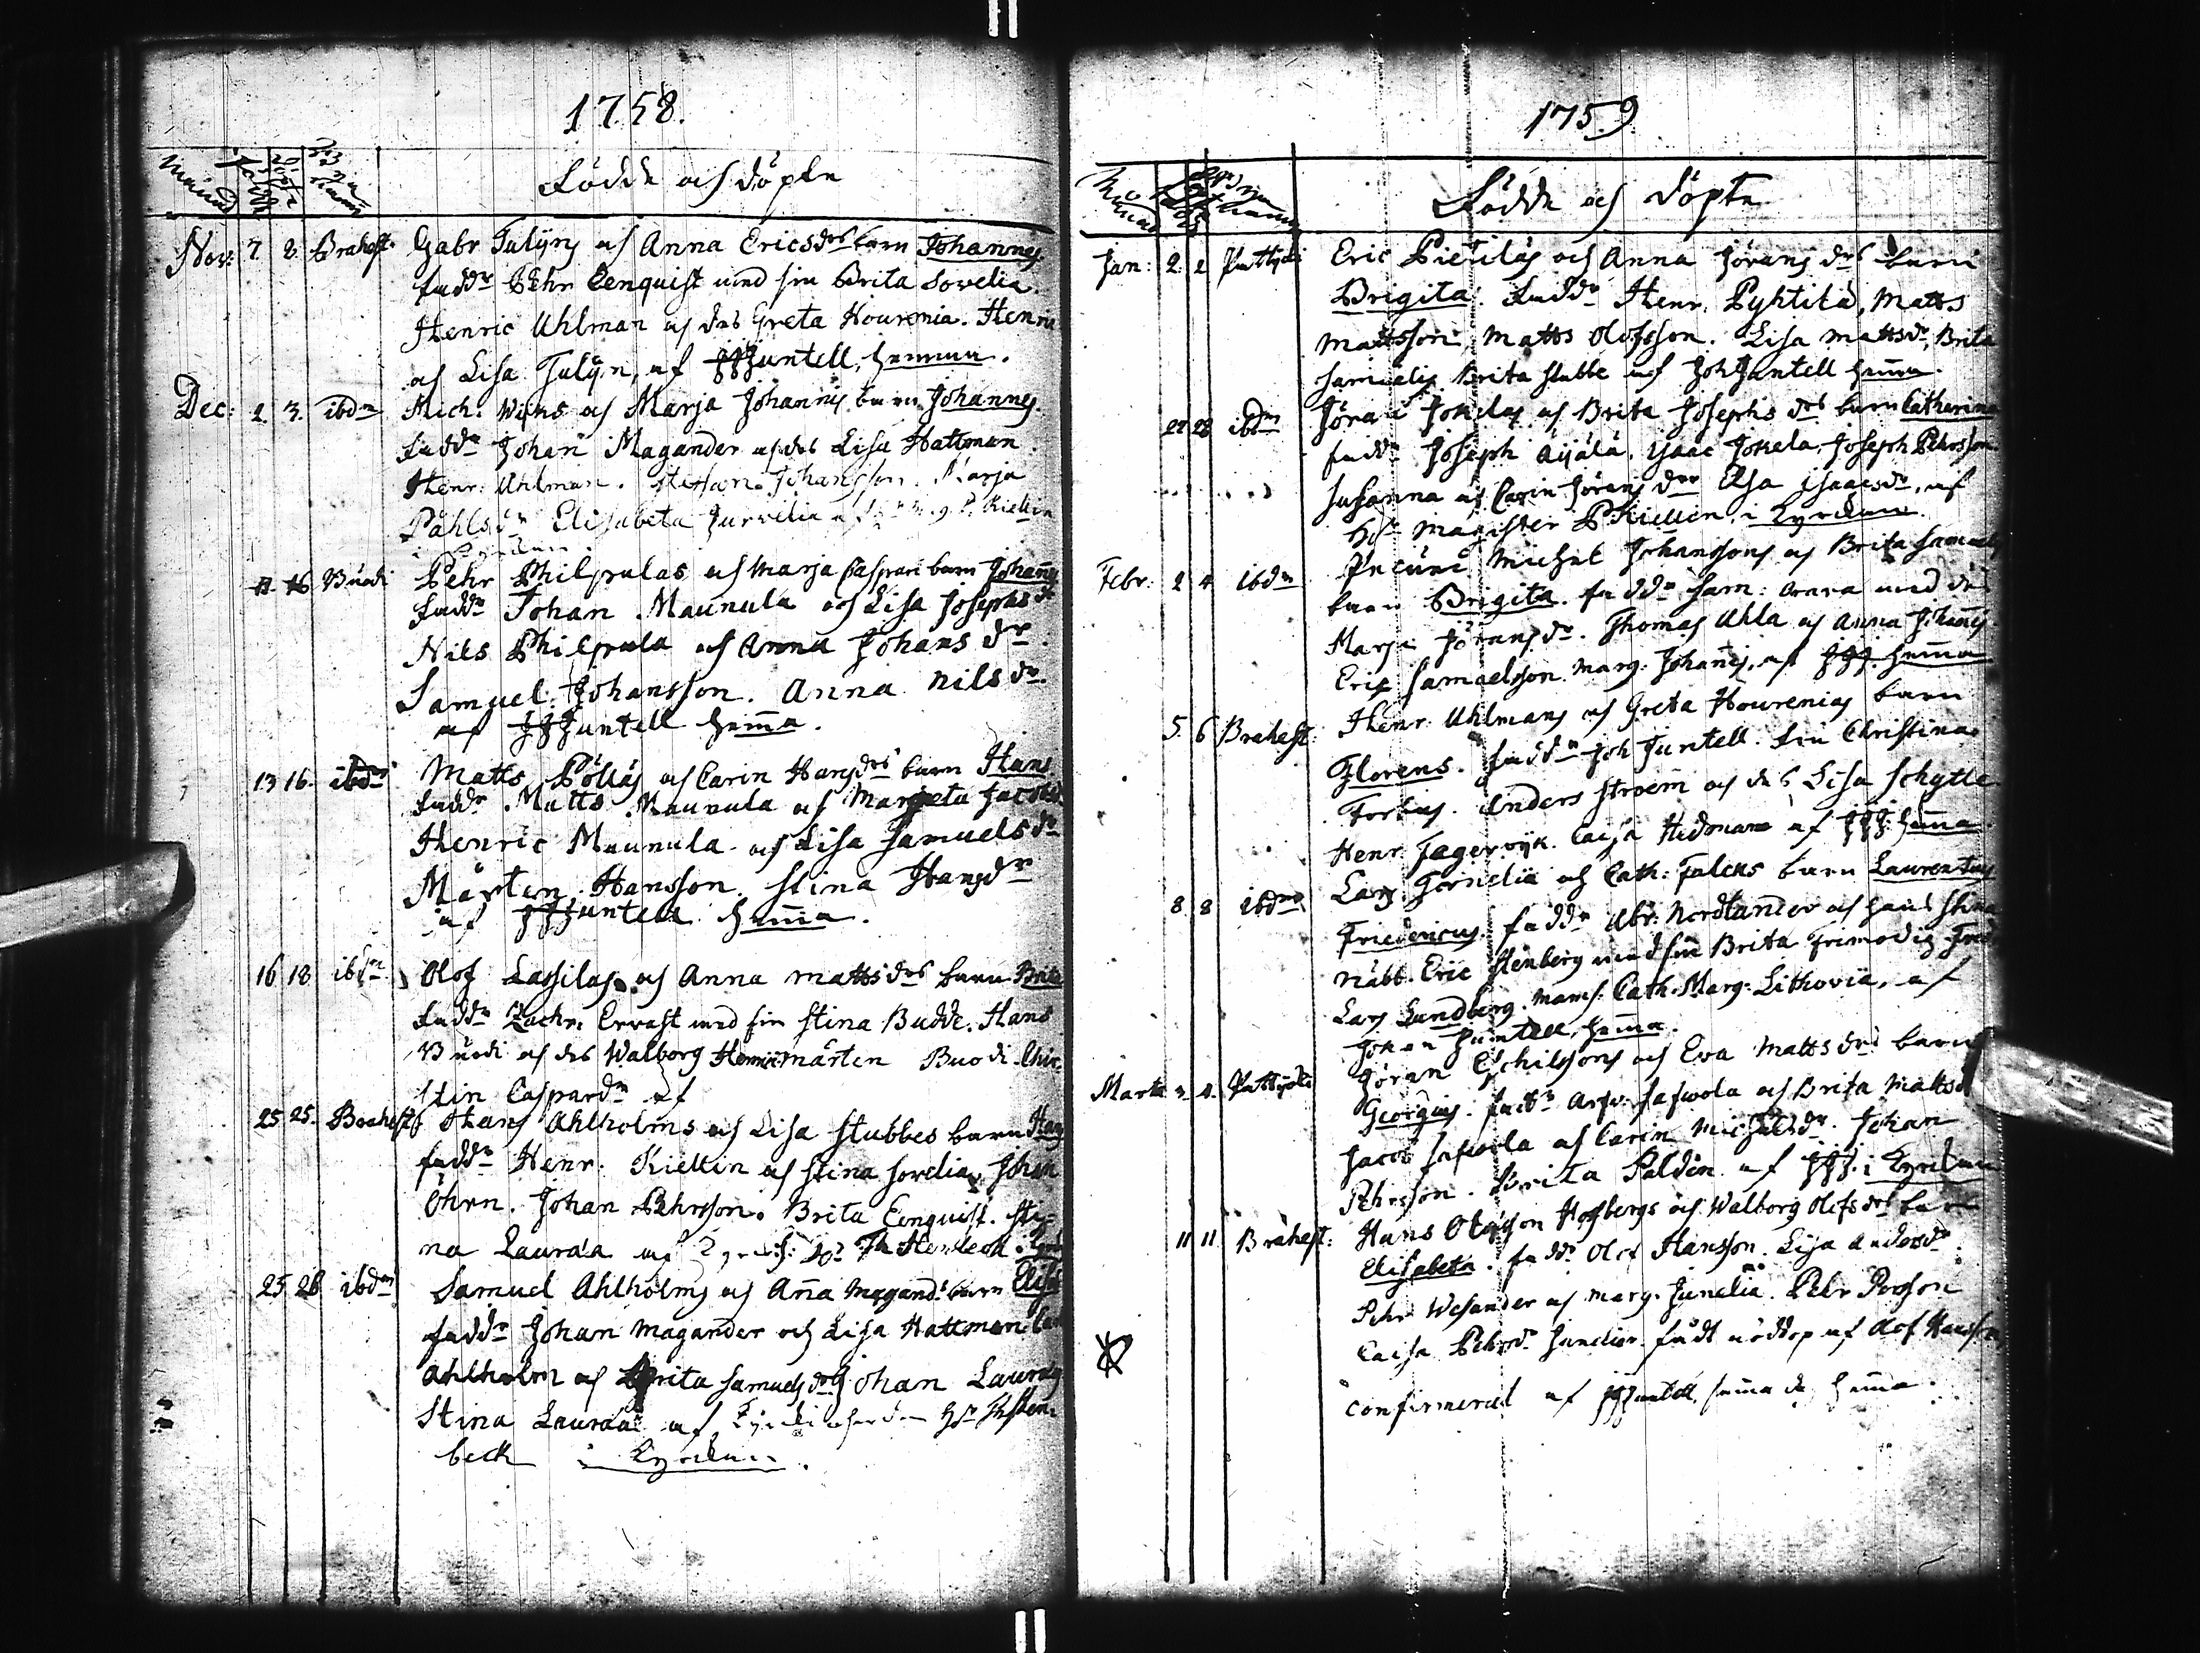 1758.
Månad Födde Döpte Byns namn
Födde och döpte
Nov: 7 8. Brahest. Gabr. Julijns och Anna Ericsdrs barn Johannes
faddr Pehr Cenquist med sin Brita Sovelia.
Henric Uhlman och des Greta Hourenia. Henric
och Lisa Julijn, af JJJuntell, hemma.
Dec: 2. 3. ibdm Mich: och Marja Johannis barn Johannes.
faddr Johan Magander och des Lisa Hattman.
Henr: Uhlman. Stephan Johansson. Marja
Påhlsdr Elisabeta Jurvelia af P. Kiellin
i Kyrckan.
11. 16 Buodi Pehr Philpulas och Marja Caspari barn Johannes
faddr Johan Maunula och Lisa Josephsdr
Nils Philpula och Anna Johans dr.
Samuel Johansson. Anna Nilsdr.
af JJJuntell hemma.
13 16. ibdm Matts Pölläs och Carin Hansdrs barn Hans
faddr. Matts Maunula och Margeta Jacobs
Henric Maunula och Lisa Samuelsdr
Mårten Hansson. Stina Hansdr
af JJJuntell hemma.
16 18 ibdm Olof Lassilas och Anna Mattsdrs barn Brita
faddr Zachr. Ervast med sin Stina Budde. Hans
Buodi och des Walborg Mårten Buodi. Chir
stin Caspardr af
25 25. Brahest Hans Ahlholms och Lisa Stubbes barn Hans
faddr Henr. Kiellin och Stina Sovelia, Johan
Öhrn. Johan Pehrsson. Brita Cenquist. Sti-
na Lauraa af
25 26 ibdm Samuel Ahlholms och Anna Magand: barn Elisa
faddr Johan Magander och Lisa Hattman
Ahlholm och Brita Samuelsdr Johan Lauraeus
Stina Lauraea af Kyrckioherden
beck i Kyrckan.
1759
Månad
Födde och Döpte
Jan: 2. 2 Pattijoki Eric Pietiläs och Anna Jörans drs barn
Brigita. Faddr Henr. Pyhtilä, Matts
Mattsson, Matts Olofsson. Lisa Mattsdr, Brita
Samuelis. Brita Stubbe af Joh Juntell hemma.
27 28 ibdm Jöran Jokelas och Brita Josephs drs barn Catherina
faddr Joseph Äijälä. Isaac Jokela. Joseph Pehrsson
Susanna och Carin Jörans drar Elsa Isaacsdr. af
Hr Magister P Kiellin i Kyrckan.
Febr: 2 4 ibdm Michel Johanssons och Brita Samuels
barn Brigita. faddr Sam: med des
Marja Jöransdr. Thomas Ahla och Anna Johannis
Eric Samuelsson. Marg. Johannis, af JJJ. hemma
5 6 Brahest. Henr. Uhlmans och Greta Hourenias barn
Florens. faddr Joh Juntell. Christina
Forbus. Anders Stroem och des Lisa Schytte
Henr. Fagervijk. Caisa Hedman af JJJ. hemma.
8 8 ibdm Lars Gornelia och Cath: Falcks barn Laurentius
Friedericus. faddr Abr. Nordlander och hans Stina
Näbb. Eric Stenberg med sin Brita Frimodig.
Lars Lundberg. Mams: Cath. Marg. Lithovia, af
Johan Juntell, hemma.
Marti Pattijoki Jöran Eschilssons och Eva Matts drs barn
Georgius. faddr Arfv. Safvola och Brita Mattsdr
Jacob Safvola och Carin Michelsdr. Johan
Pehrsson. Brita Paldan af JJJ. i Kyrckan
11 11 Brahest: Hans Olofsson Hofbergs och Walborg Olofs drs barn
Elisabeta. faddr Olof Hansson. Lisa Andersdr
Pehr Wesander och Marg. Junelia. Pehr Persson
Caisa Pehrsdr Junelia. fådt nöddop af Olof Hansson
confirmerad af JJJuntell, samma da hemma.